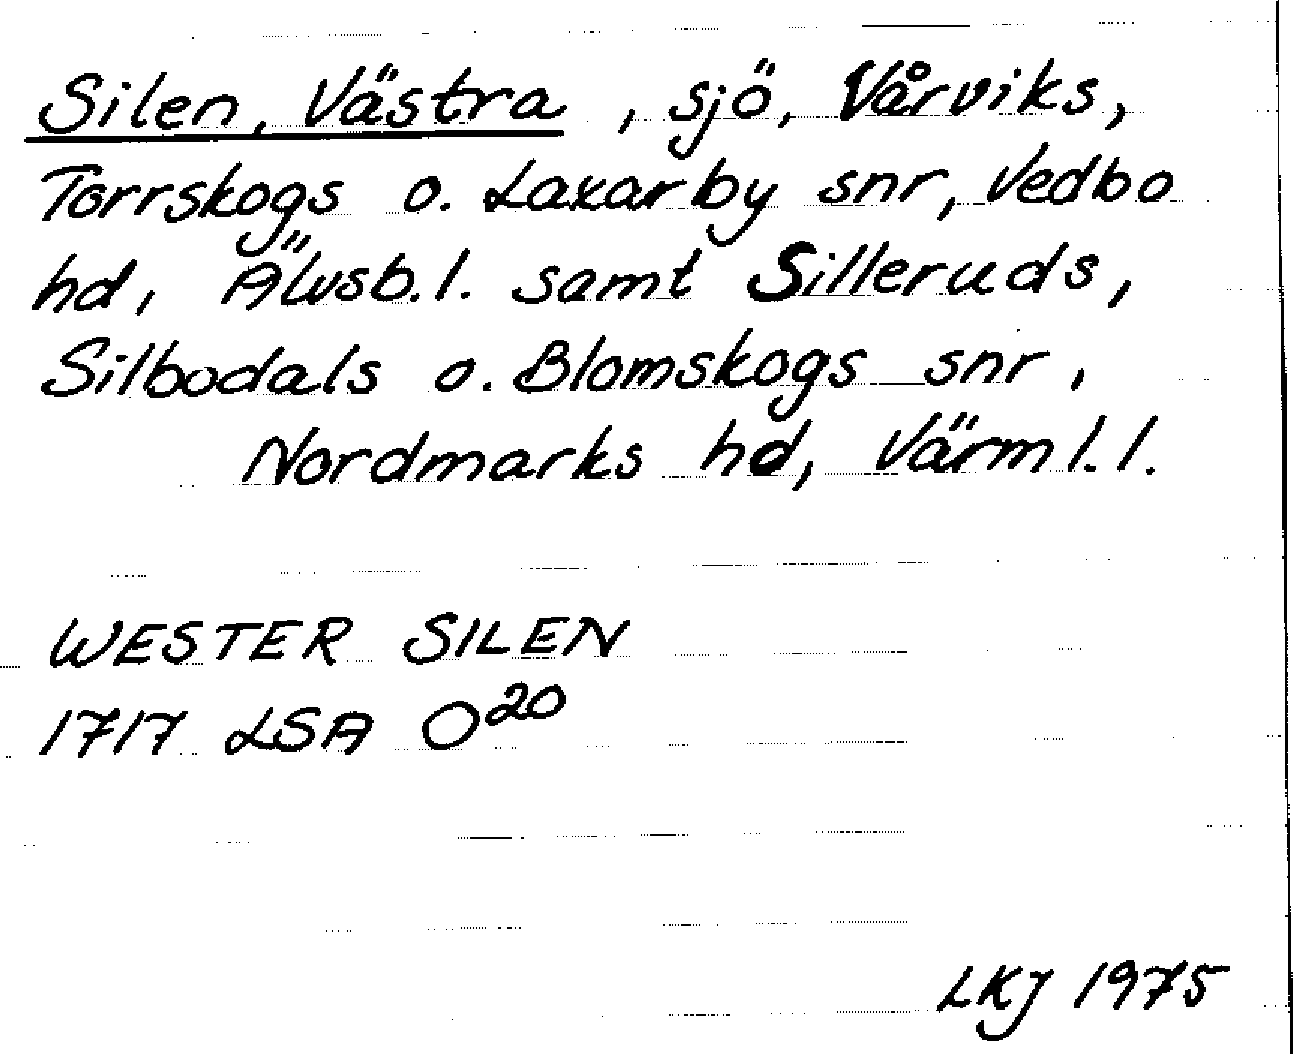 Silen, Västra, sjö, Vårviks,
Torrskogs o. Laxarby snr, Vedbo
hd, Älvsb. l. samt Silleruds,
Silbodals o. Blomskogs snr,
Nordmarks hd, Värml. l.
WESTER SILEN
1717 LSA O20
LKJ 1975